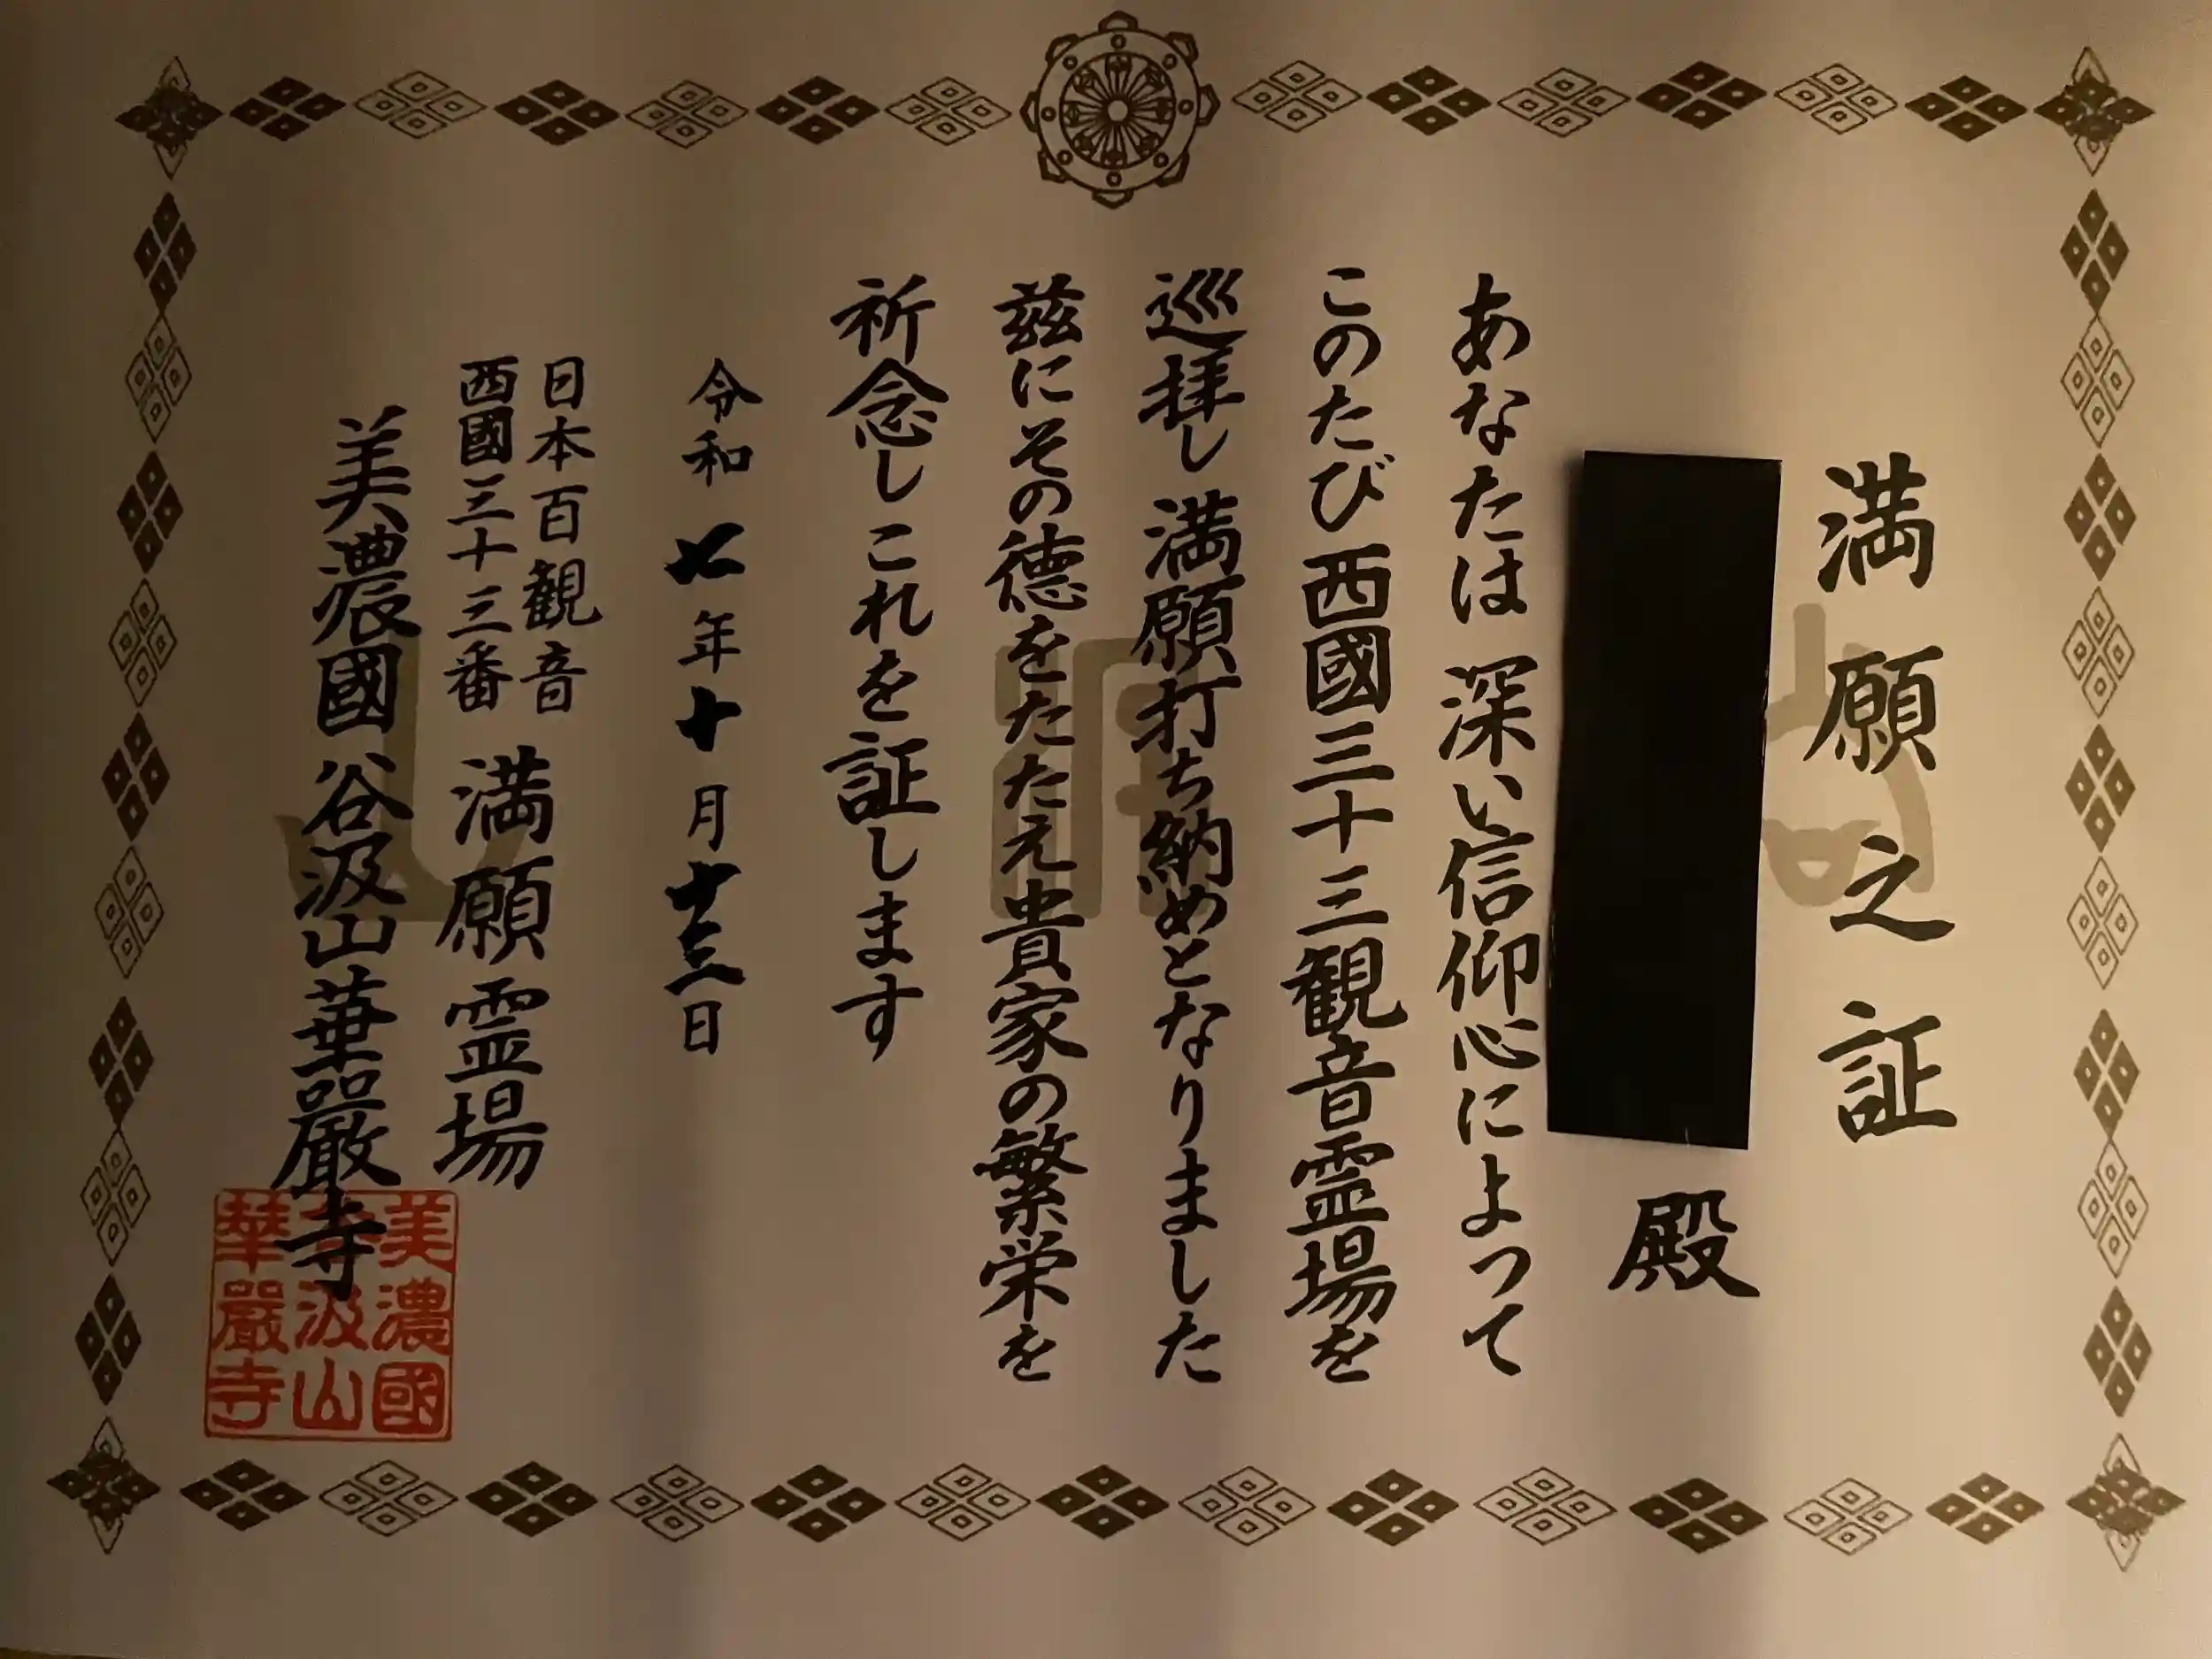 満願之証
殿
あなたは深い信仰心によって
このたび西國三十三観音霊場を
巡拝し満願打ち納めとなりました
茲にその徳をたたえ貴家の繁栄を
祈念しこれを証します
令和七年十月十三日
日本百観音
西國三十三番
満願霊場
美濃國谷汲山華厳寺
美濃國
谷汲山
華嚴寺